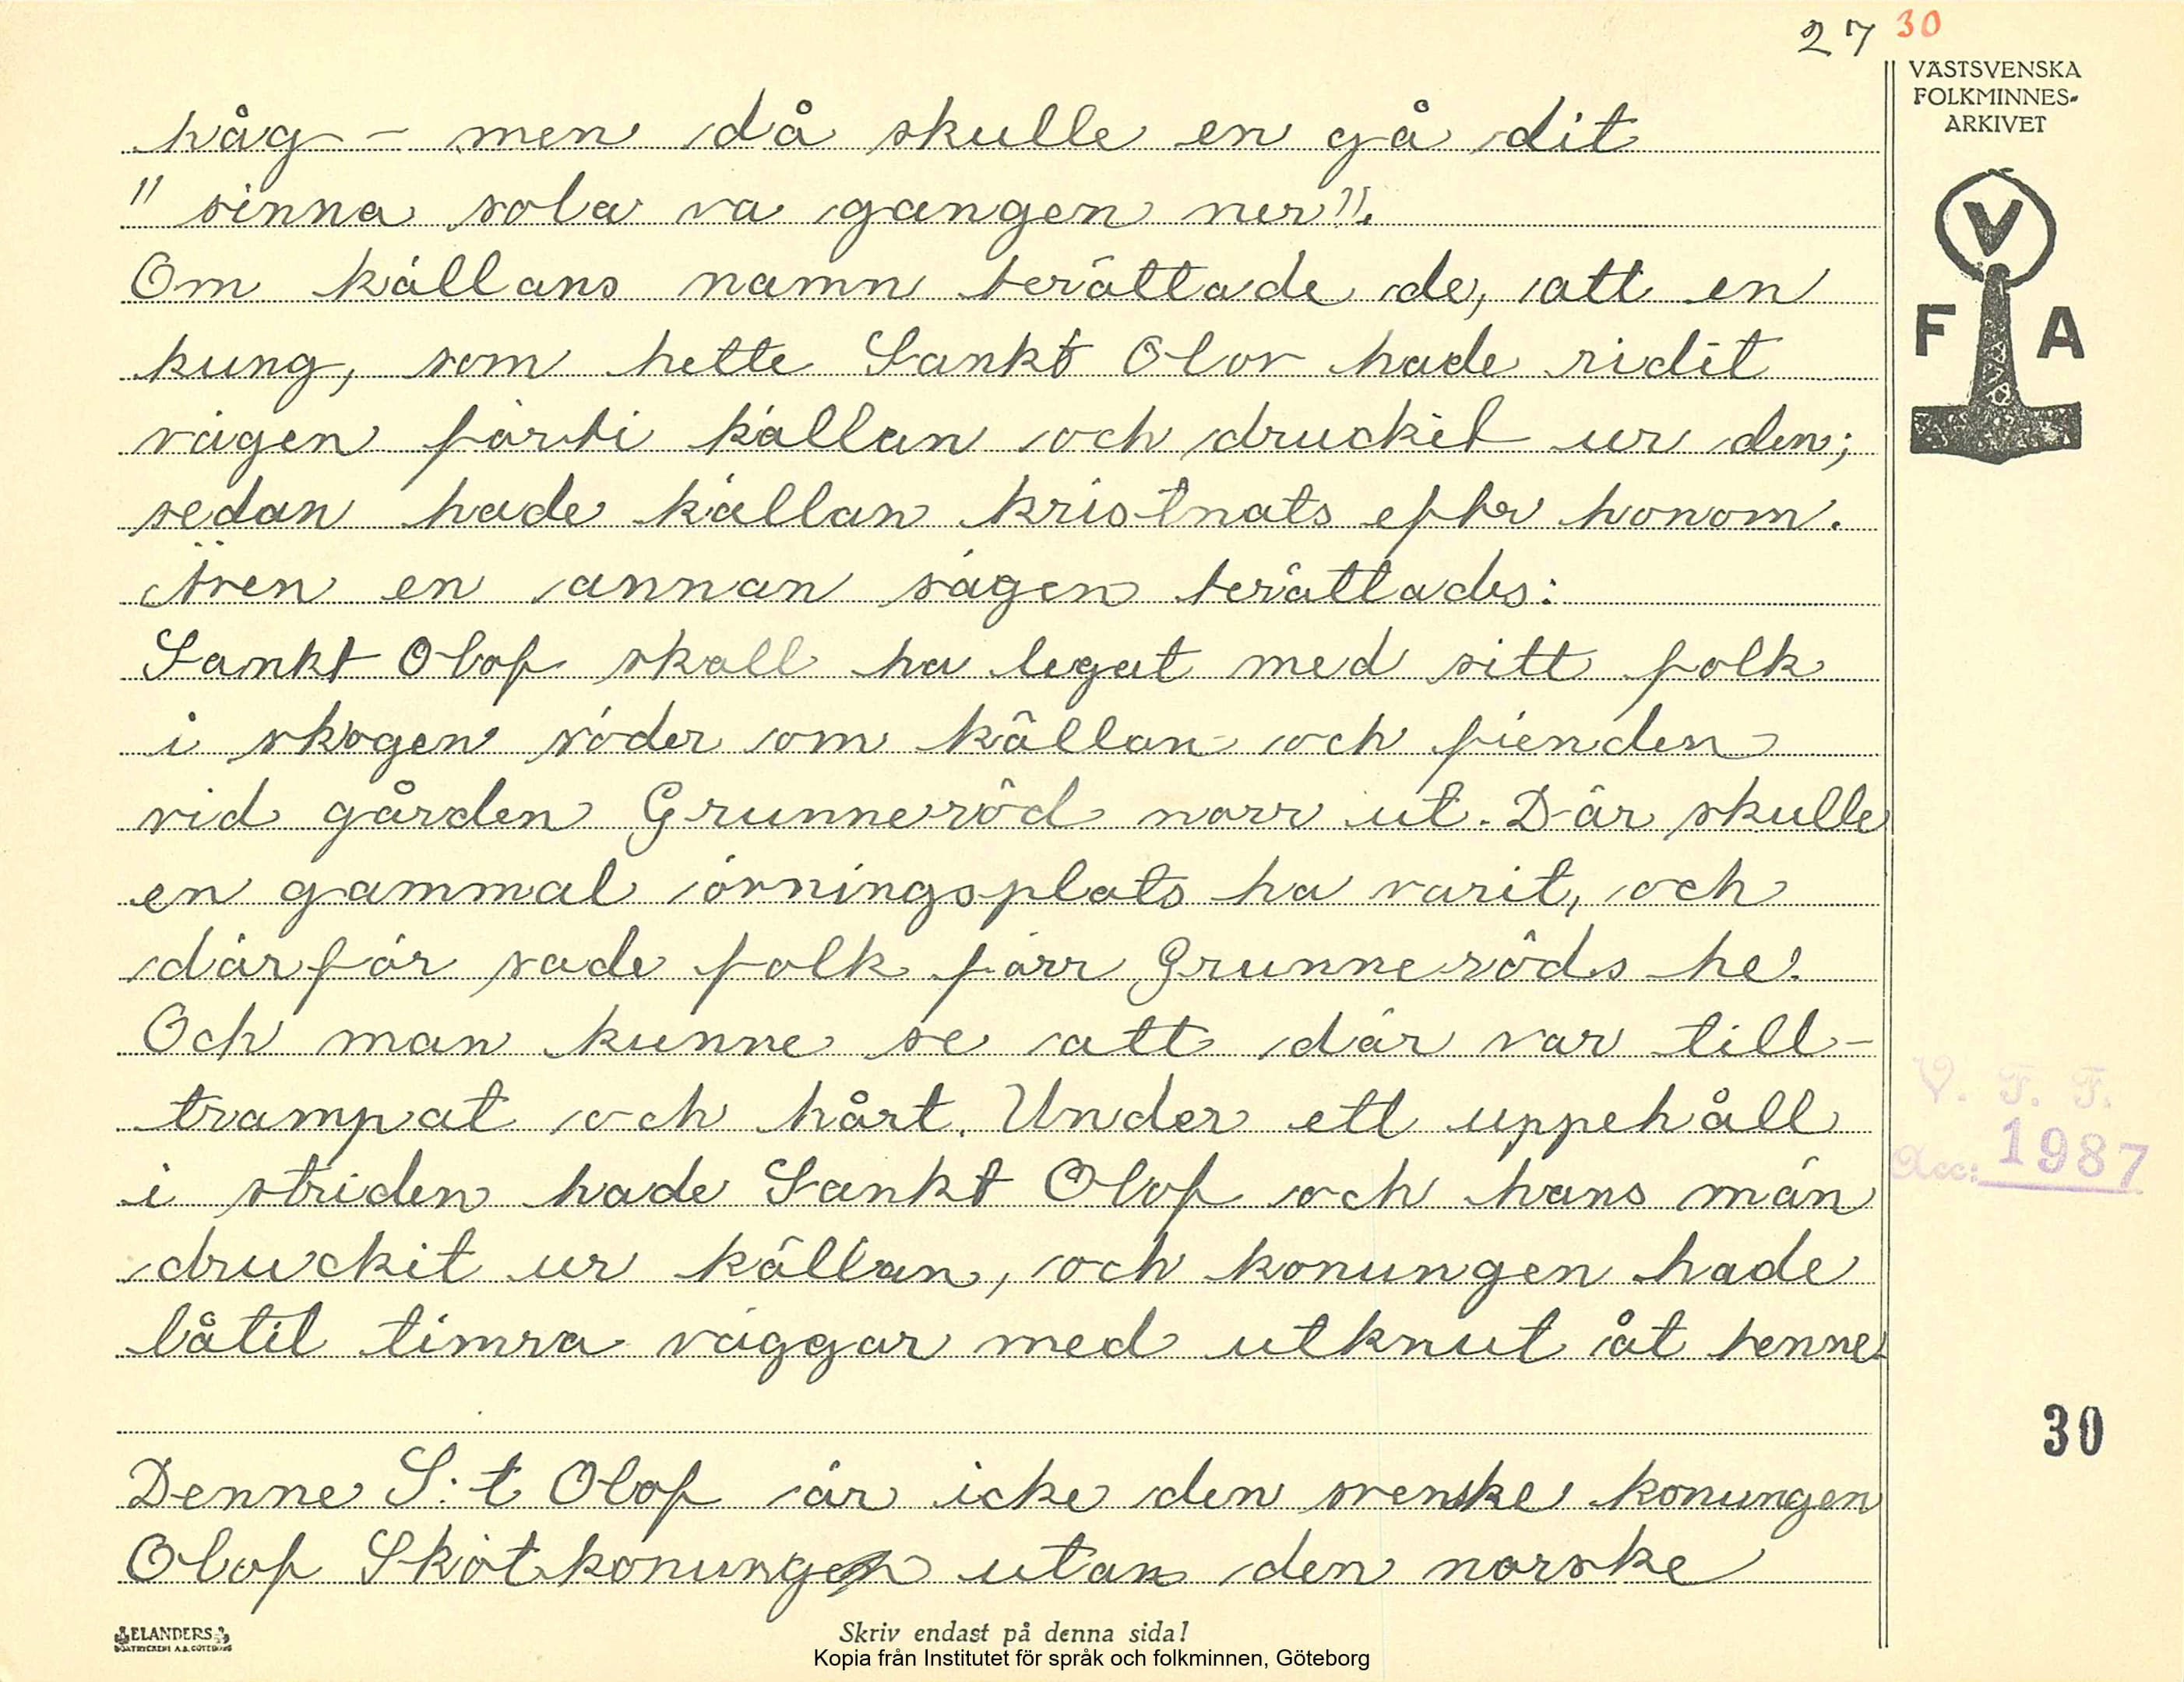 27 30
VÄSTSVENSKA
FOLKMINNES-
ARKIVET
håg – men då skulle en gå dit
" sinna sola va gangen ner".
Om källans namn berättade de, att en
kung, som hette Sankt Olov hade ridit
vägen förbi källan och druckit ur den;
sedan hade källan kristnats efter honom.
Även en annan sägen berättades:
Sankt Olof skall ha legat med sitt folk
i skogen söder om källan och fienden
vid gården Grunneröd norr ut. Där skulle
en gammal övningsplats ha varit, och
därför sade folk förr Grunneröds he.
Och man kunne se att där var till-
trampat och hårt. Under ett uppehåll
i striden hade Sankt Olof och hans män
druckit ur källan, och konungen hade
låtit timra väggar med utknut åt henne.
Denne S:t Olof är icke den svenske konungen
Olof Skötkonungen utan den norske
V
F A
V. F. F.
Acc: 1987
30
ELANDERS
BOKTRYCKERI A.B. GÖTEBORG
Skriv endast på denna sida!
Kopia från Institutet för språk och folkminnen, Göteborg